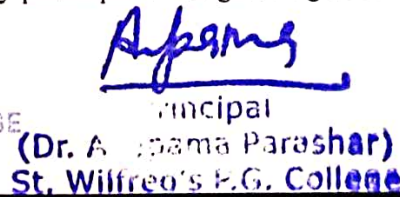 Anupama
Principal
(Dr. Anupama Parashar)
St. Wilfred's P.G. College